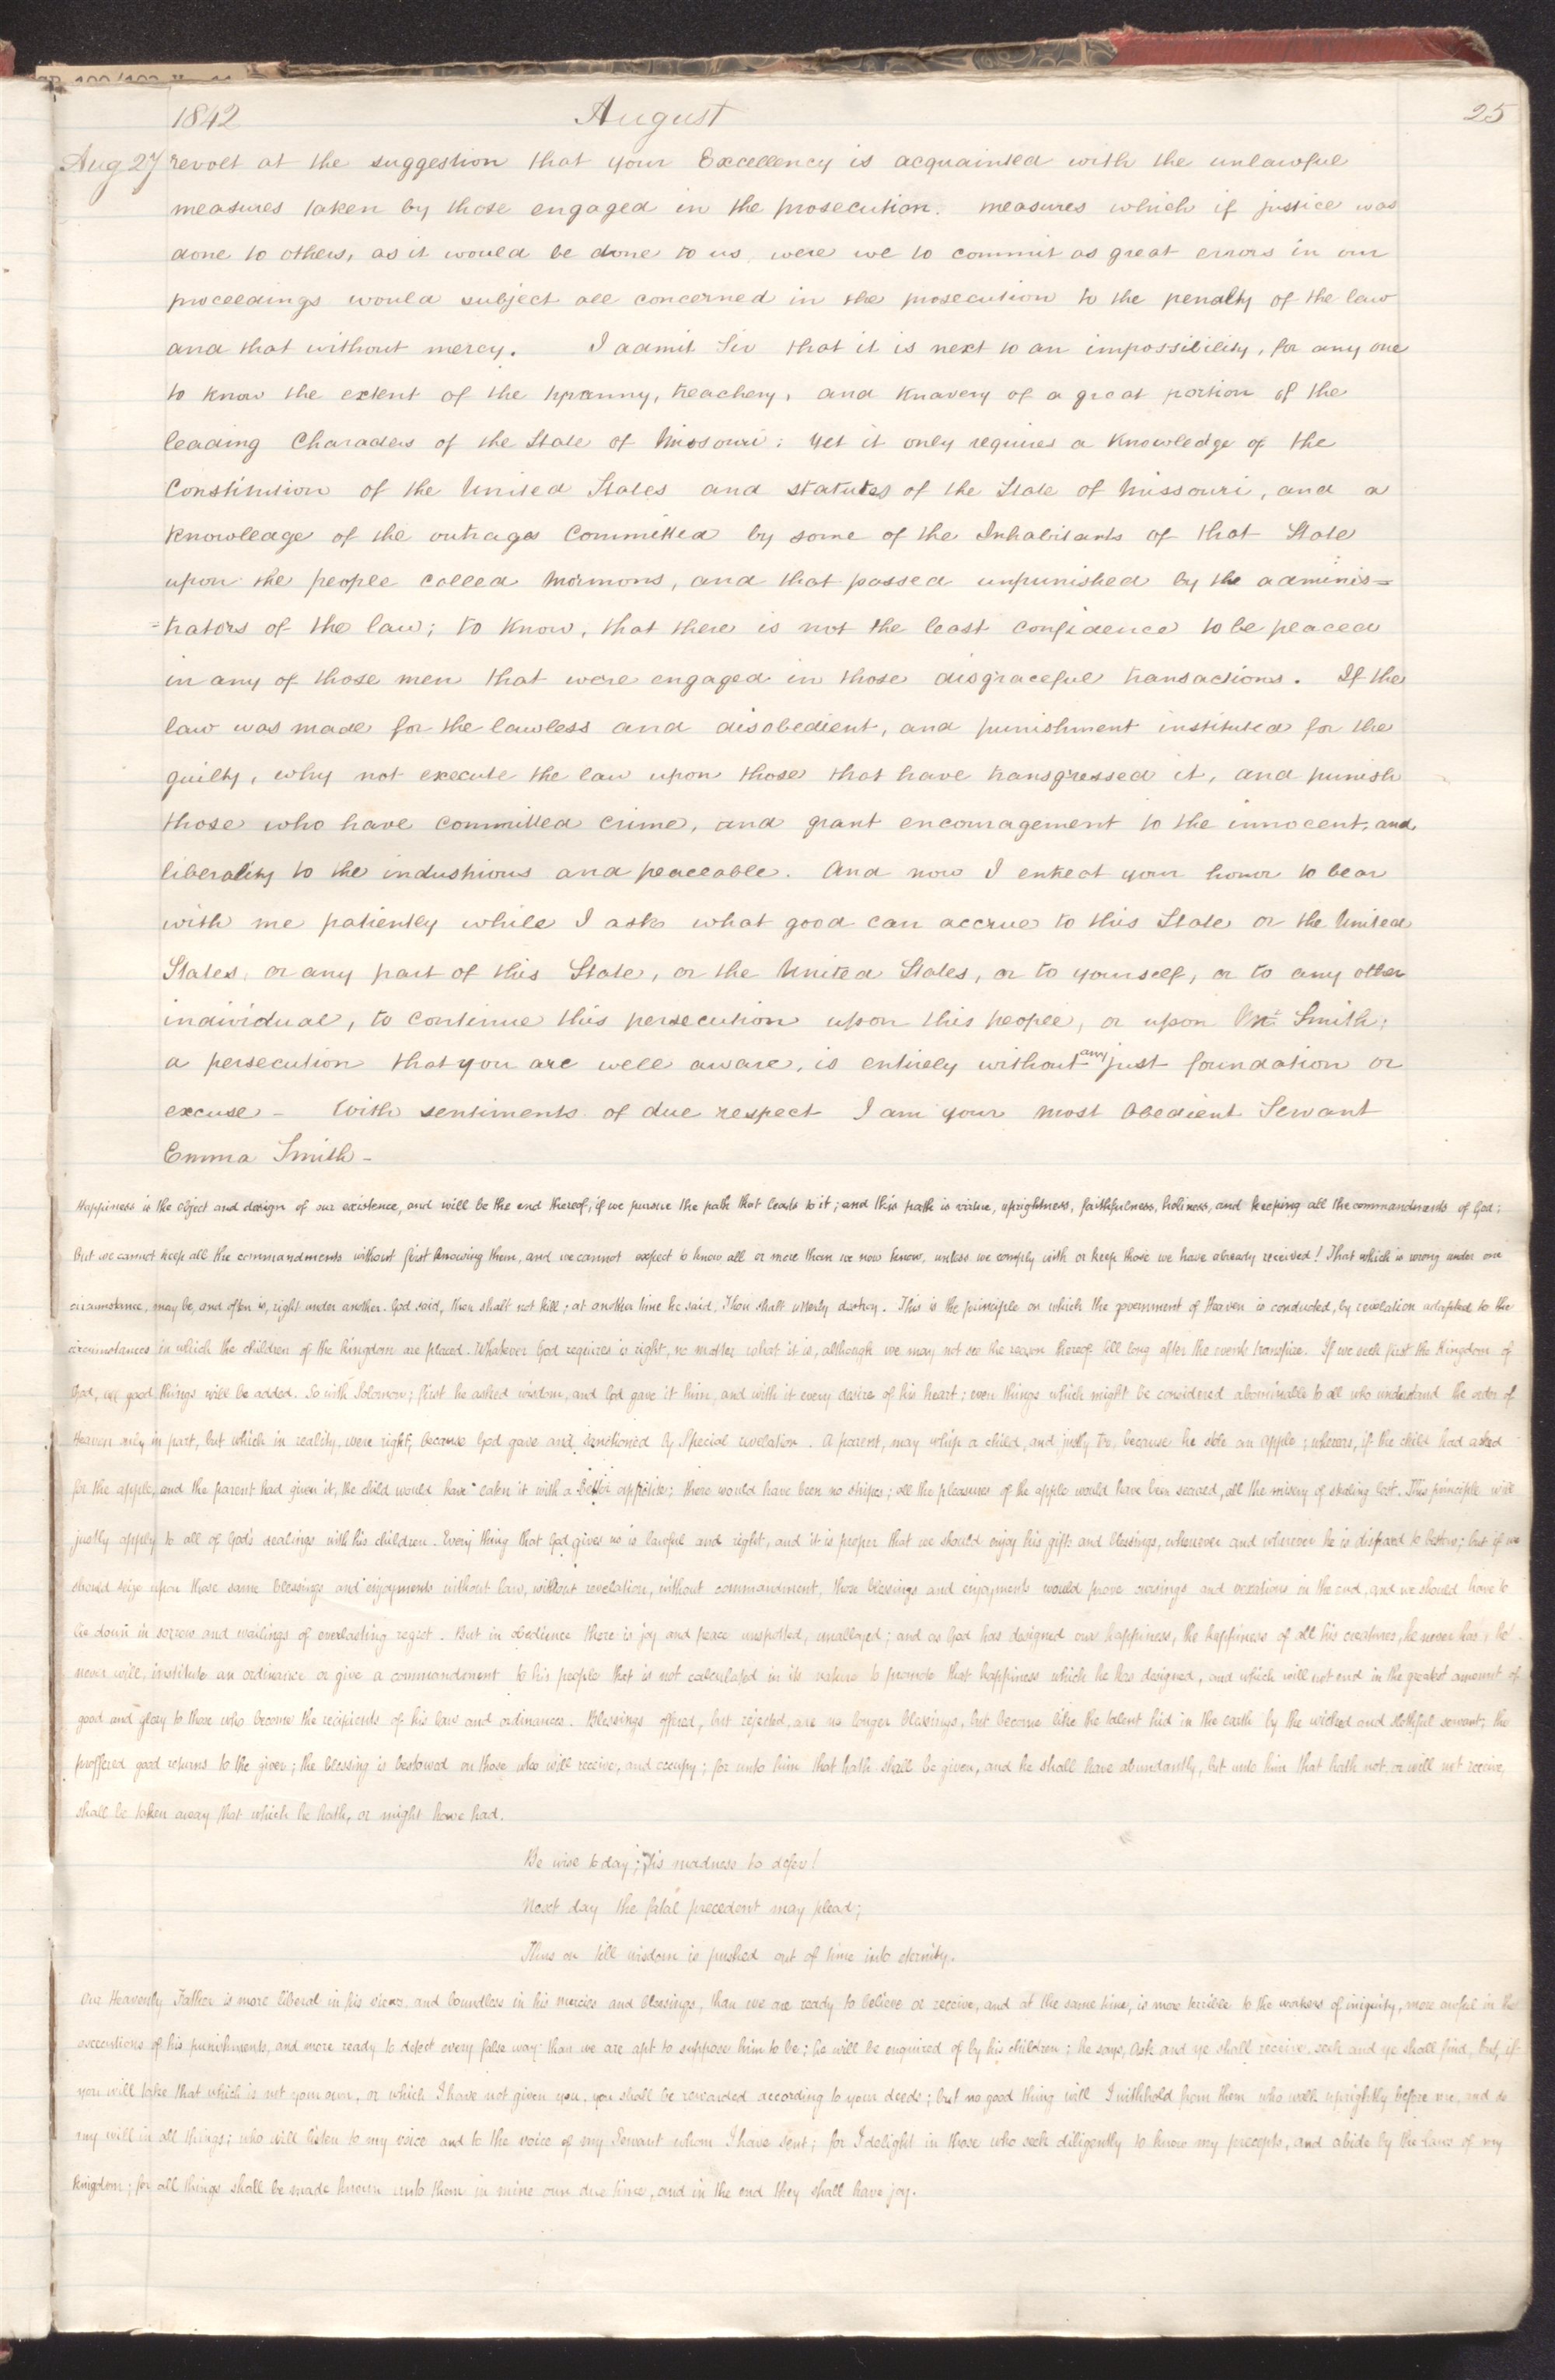 1842 August 25
Aug 27 revolt at the suggestion that your Excellency is acquainted with the unlawful
measures taken by those engaged in the prosecution. measures which if justice was
done to others, as it would be done to us, were we to commit as great errors in our
proceedings would subject all concerned in the prosecution to the penalty of the law
and that without mercy. I admit Sir that it is next to an impossibility, for any one
to know the extent of the tyranny, treachery, and knavery of a great portion of the
leading Characters of the State of Missouri: yet it only requires a knowledge of the
Constitution of the United States and statutes of the State of Missouri, and a
knowledge of the outrages Committed by some of the Inhabitants of that State
upon the people called Mormons, and that passed unpunished by the adminis=
=trators of the law; to know, that there is not the least confidence to be placed
in any of those men that were engaged in those disgraceful transactions. If the
law was made for the lawless and disobedient, and punishment instituted for the
guilty, why not execute the law upon those that have transgressed it, and punish
those who have committed crime, and grant encouragement to the innocent, and
liberality to the industrious and peaceable. And now I entreat your honor to bear
with me patiently while I ask what good can accrue to this State or the United
States, or any part of this State, or the United States, or to yourself, or to any other
individual, to continue this persecution upon this people, or upon Mr. Smith;
a persecution that you are well aware, is entirely without any just foundation or
excuse – With sentiments of due respect I am your most Obedient Servant
Emma Smith –
Happiness is the object and design of our existence, and will be the end thereof, if we pursue the path that leads to it; and this path is virtue, uprightness, faithfulness, holiness, and keeping all the commandments of God;
But we cannot keep all the commandments without first knowing them, and we cannot expect to know all or more than we now know, unless we comply with or keep those we have already received! That which is wrong under one
circumstance, may be, and often is, right under another. God said, thou shalt not kill; at another time he said, Thou shalt utterly destroy. This is the principle on which the government of Heaven is conducted, by revelation adapted to the
circumstances in which the children of the kingdom are placed. Whatever God requires is right, no matter what it is, although we may not see the reason thereof till long after the events transpire. If we seek first the Kingdom of
God, all good things will be added. So with Solomon; first he asked wisdom, and God gave it him, and with it every desire of his heart; even things which might be considered abominable to all who understand the order of
Heaven only in part, but which in reality, were right, because God gave and sanctioned by Special revelation. A parent, may whip a child, and justly too, because he stole an apple; whereas, if the child had asked
for the apple, and the parent had given it, the child would have eaten it with a Better appetite; there would have been no stripes; all the pleasures of the apple would have been secured, all the misery of stealing lost. This principle will
justly apply to all of God's dealings with his children. Every thing that God gives us is lawful and right, and it is proper that we should enjoy his gifts and blessings, whenever and wherever he is disposed to bestow; but if we
should seize upon those same blessings and enjoyments without law, without revelation, without commandment, those blessings and enjoyments would prove cursings and vexations in the end, and we should have to
lie down in sorrow and wailings of everlasting regret. But in obedience there is joy and peace unspotted, unalloyed; and as God has designed our happiness, the happiness of all his creatures, he never has, he
never will, institute an ordinance or give a commandment to his people that is not calculated in its nature to promote that happiness which he has designed, and which will not end in the greatest amount of
good and glory to those who become the recipients of his law and ordinances. Blessings offered, but rejected, are no longer blessings, but become like the talent hid in the earth by the wicked and slothful servant; the
proffered good returns to the giver; the blessing is bestowed on those who will receive, and occupy; for unto him that hath shall be given, and he shall have abundantly, but unto him that hath not, or will not receive,
shall be taken away that which he hath, or might have had.
Be wise to day; 'Tis madness to defer!
Next day the fatal precedent may plead;
Thus on till wisdom is pushed out of time into eternity.
Our Heavenly Father is more liberal in his views, and boundless in his mercies and blessings, than we are ready to believe or receive, and at the same time, is more terrible to the workers of iniquity, more awful in the
executions of his punishments, and more ready to detect every false way than we are apt to suppose him to be; he will be enquired of by his children; he says, ask and ye shall receive, seek and ye shall find, but, if
you will take that which is not your own, or which I have not given you, you shall be rewarded according to your deeds; but no good thing will I withhold from them who walk uprightly before me, and do
my will in all things; who will listen to my voice and to the voice of my Servant whom I have sent; for I delight in those who seek diligently to know my precepts, and abide by the laws of my
kingdom; for all things shall be made known unto them in mine own due time, and in the end they shall have joy.